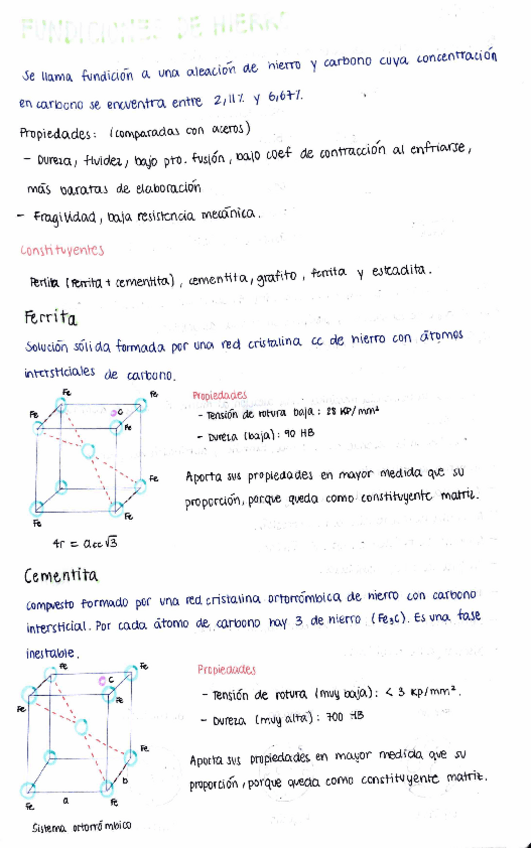 FUNDICIONES DE HIERRO
Se llama fundición a una aleación de hierro y carbono cuya concentración
en carbono se encuentra entre 2,11% y 6,67%.
Propiedades: (comparadas con aceros)
- Dureza, fluidez, bajo pto. fusión, bajo coef de contracción al enfriarse,
más baratas de elaboración
- Fragilidad, baja resistencia mecánica.
Constituyentes
Perlita (ferrita + cementita), cementita, grafito, ferrita y esteadita.
Ferrita
Solución sólida formada por una red cristalina cc de hierro con átomos
intersticiales de carbono.
Fe
Fe
Fe
C
Fe
Fe
Fe
Fe
4r = acc√3
Propiedades
- Tensión de rotura baja: 28 KP/mm²
- Dureza (baja): 90 HB
Aporta sus propiedades en mayor medida que su
proporción, porque queda como constituyente matriz.
Cementita
Compuesto formado por una red cristalina ortorrómbica de hierro con carbono
intersticial. Por cada átomo de carbono hay 3 de hierro (Fe3C). Es una fase
inestable.
Fe
Fe
C
Fe
Fe
Fe
b
Fe
a
Fe
Sistema ortorrómbico
Propiedades
- Tensión de rotura (muy baja): < 3 KP/mm².
- Dureza (muy alta): 700 HB
Aporta sus propiedades en mayor medida que su
proporción, porque queda como constituyente matriz.